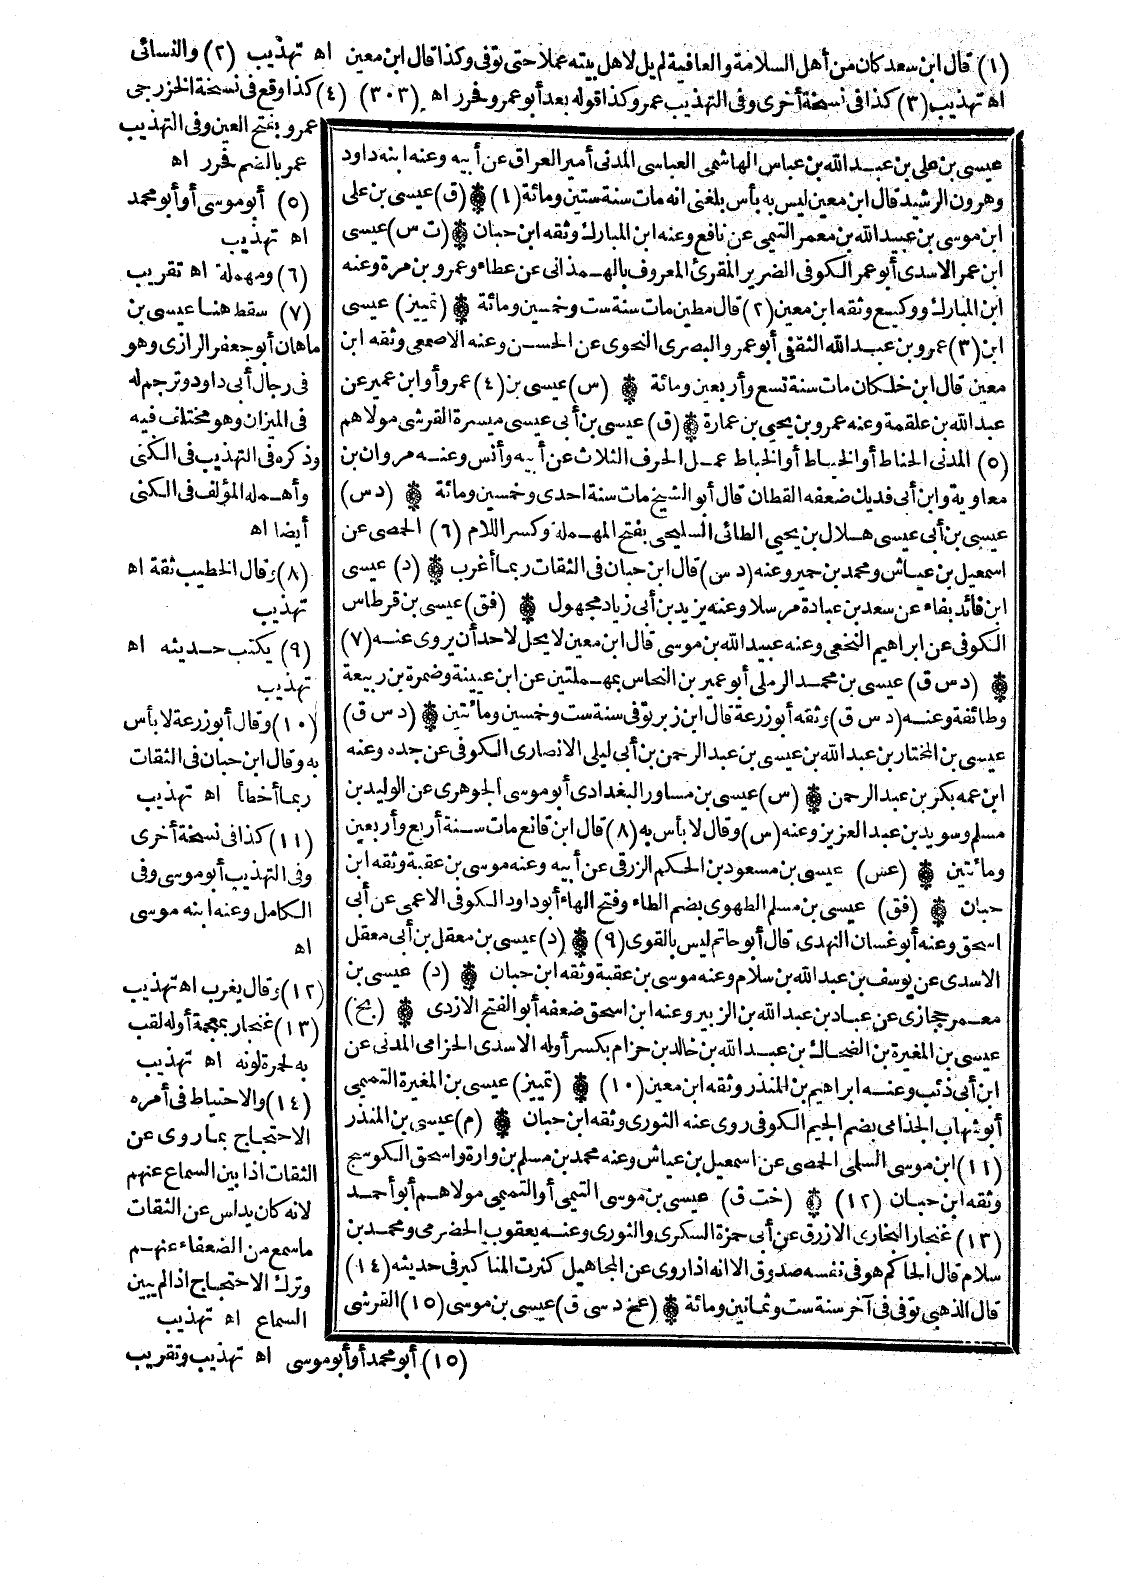 (١) قال ابن سعد كان من أهل السلامة والعافية لم يل لاهل بيته عملا حتى توفى وكذا قال ابن معين اه تهذيب (٢) والنسائى
اه تهذيب (٣) كذا فى نسخة أخرى وفى التهذيب عمر وكذا قوله بعد أبو عمرو فحرر اه (٣٠٣) (٤) كذا وقع فى نسخة الخزرجى
عمرو بفتح العين وفى التهذيب
عمر بالضم فحرر اه
(٥) أبو موسى أو أبو محمد
اه تهذيب
(٦) ومهملة اه تقريب
(٧) سقط هنا عيسى بن
ماهان أبو جعفر الرازى وهو
فى رجال أبى داود وترجم له
فى الميزان وهو مختلف فيه
وذكره فى التهذيب فى الكنى
وأهمله المؤلف فى الكنى
أيضا اه
(٨) وقال الخطيب ثقة اه
تهذيب
(٩) يكتب حديثه اه
تهذيب
(١٠) وقال أبو زرعة لا بأس
به وقال ابن حبان فى الثقات
ربما أخطأ اه تهذيب
(١١) كذا فى نسخة أخرى
وفى التهذيب أبو موسى وفى
الكامل وعنه ابنه موسى
اه
(١٢) وقال يغرب اه تهذيب
(١٣) غنجار بمعجمة أوله لقب
به لحمرة لونه اه تهذيب
(١٤) والاحتياط فى أمره
الاحتجاج بما روى عن
الثقات اذا بين السماع عنهم
لانه كان يدلس عن الثقات
ما سمع من الضعفاء عنهم
وترك الاحتجاج اذا لم يبين
السماع اه تهذيب
عيسى بن على بن عبد الله بن عباس الهاشمى العباسى المدنى أمير العراق عن أبيه وعنه ابنه داود
وهرون الرشيد قال ابن معين ليس به بأس بلغنى انه مات سنة ستين ومائة (١) (ق) عيسى بن على
ابن موسى بن عبيد الله بن معمر التيمى عن نافع وعنه ابن المبارك وثقه ابن حبان (ت س) عيسى
ابن عمر الاسدى أبو عمر الكوفى الضرير المقرئ المعروف بالهمدانى عن عطاء وعمرو بن مرة وعنه
ابن المبارك ووكيع وثقه ابن معين (٢) قال مطين مات سنة ست وخمسين ومائة (تمييز) عيسى
ابن (٣) عمرو بن عبد الله الثقفى أبو عمرو البصرى النحوى عن الحسن وعنه الاصمعى وثقه ابن
معين قال ابن خلكان مات سنة تسع وأربعين ومائة (س) عيسى بن (٤) عمرو أو ابن عمير عن
عبد الله بن علقمة وعنه عمرو بن يحيى بن عمارة (ق) عيسى بن أبى عيسى ميسرة القرشى مولاهم
(٥) المدنى الحناط أو الخياط أو الخباط عمل الحرف الثلاث عن أبيه وأنس وعنه مروان بن
معاوية وابن أبى فديك ضعفه القطان قال أبو الشيخ مات سنة احدى وخمسين ومائة (د س)
عيسى بن أبى عيسى هلال بن يحيى الطائى السليحى بفتح المهملة وكسر اللام (٦) الحمصى عن
اسمعيل بن عياش ومحمد بن حمير وعنه (د س) قال ابن حبان فى الثقات ربما أغرب (د) عيسى
ابن فائد بفاء عن سعد بن عبادة مرسلا وعنه يزيد بن أبى زياد مجهول (فق) عيسى بن قرطاس
الكوفى عن ابراهيم النخعى وعنه عبيد الله بن موسى قال ابن معين لا يحل لاحد أن يروى عنه (٧)
(د س ق) عيسى بن محمد الرملى أبو عمير بن النحاس بمهملتين عن ابن عيينة وضمرة بن ربيعة
وطائفة وعنه (د س ق) وثقه أبو زرعة قال ابن زبر توفى سنة ست وخمسين ومائتين (د س ق)
عيسى بن المختار بن عبد الله بن عيسى بن عبد الرحمن بن أبى ليلى الانصارى الكوفى عن جده وعنه
ابن عمه بكر بن عبد الرحمن (س) عيسى بن مساور البغدادى أبو موسى الجوهرى عن الوليد بن
مسلم وسويد بن عبد العزيز وعنه (س) وقال لا بأس به (٨) قال ابن قانع مات سنة أربع وأربعين
ومائتين (عس) عيسى بن مسعود بن الحكم الزرقى عن أبيه وعنه موسى بن عقبة وثقه ابن
حبان (فق) عيسى بن مسلم الطهوى بضم الطاء وفتح الهاء أبو داود الكوفى الاعمى عن أبى
اسحق وعنه أبو غسان النهدى قال أبو حاتم ليس بالقوى (٩) (د) عيسى بن معقل بن أبى معقل
الاسدى عن يوسف بن عبد الله بن سلام وعنه موسى بن عقبة وثقه ابن حبان (د) عيسى بن
معمر حجازى عن عباد بن عبد الله بن الزبير وعنه ابن اسحق ضعفه أبو الفتح الازدى (بخ)
عيسى بن المغيرة بن الضحاك بن عبد الله بن خالد بن حزام بكسر أوله الاسدى الحزامى المدنى عن
ابن أبى ذئب وعنه ابراهيم بن المنذر وثقه ابن معين (١٠) (تمييز) عيسى بن المغيرة التميمى
أبو شهاب الجذامى بضم الجيم الكوفى روى عنه الثورى وثقه ابن حبان (م) عيسى بن المنذر
(١١) ابن موسى السلمى الحمصى عن اسمعيل بن عياش وعنه محمد بن مسلم بن وارة واسحق الكوسج
وثقه ابن حبان (١٢) (خت ق) عيسى بن موسى التيمى أو التميمى مولاهم أبو أحمد
(١٣) غنجار البخارى الازرق عن أبى حمزة السكرى والثورى وعنه يعقوب الحضرمى ومحمد بن
سلام قال الحاكم هو فى نفسه صدوق الا انه اذا روى عن المجاهيل كثرت المناكير فى حديثه (١٤)
قال الذهبى توفى فى آخر سنة ست وثمانين ومائة (عخ د سى ق) عيسى بن موسى (١٥) القرشى
(١٥) أبو محمد أو أبو موسى اه تهذيب وتقريب